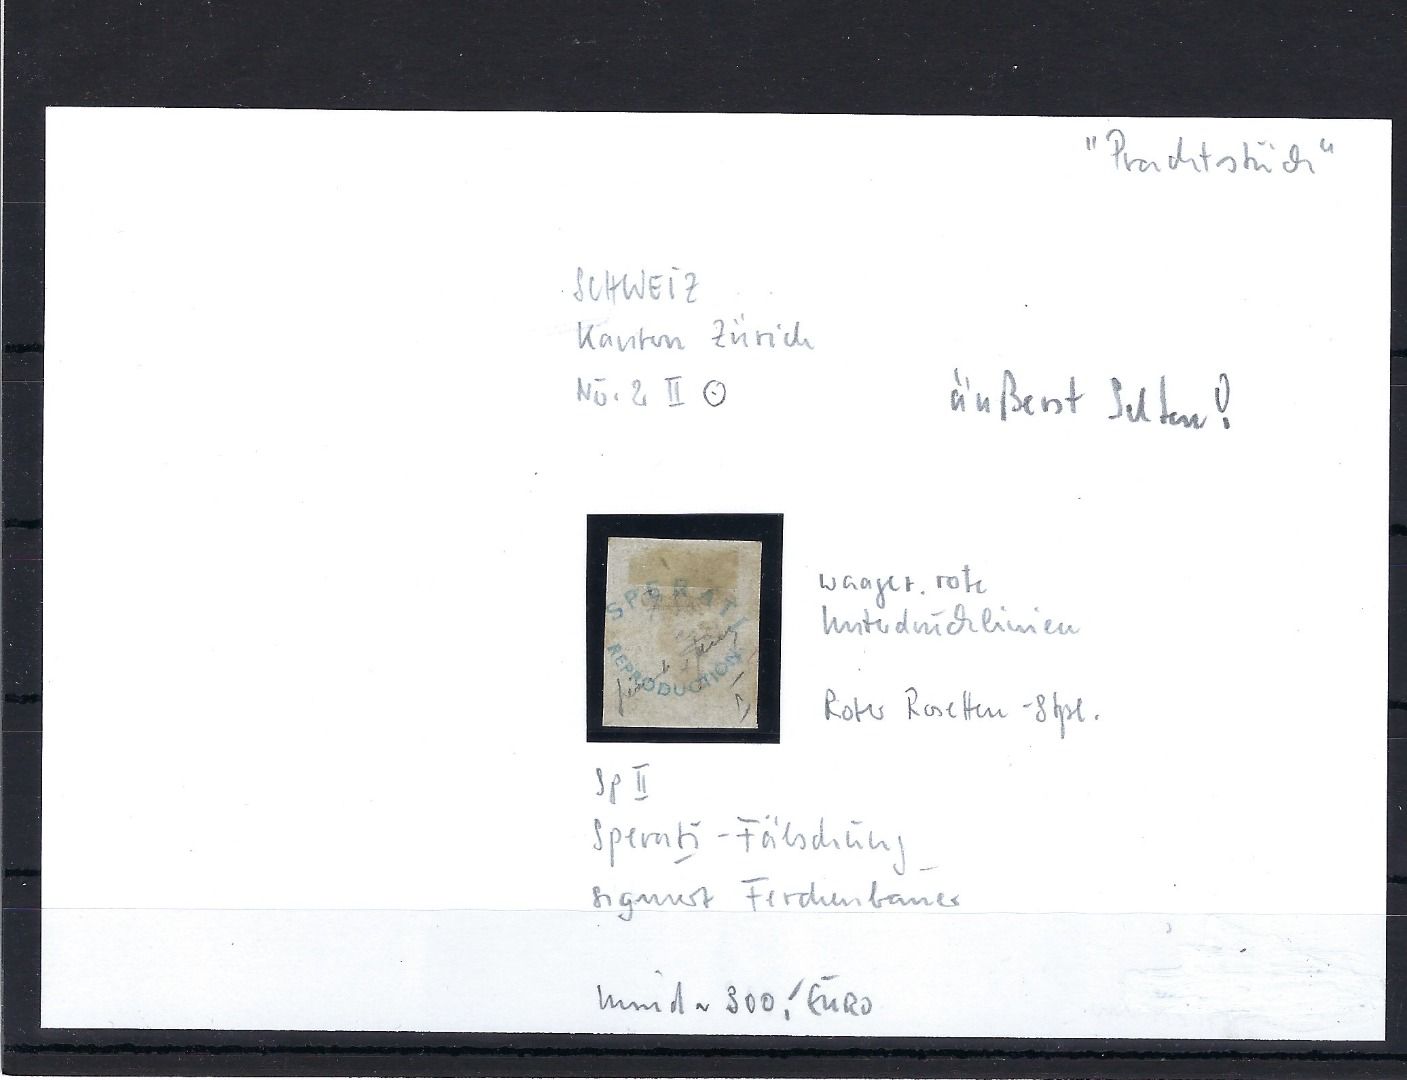 "Prachtstück"
SCHWEIZ
Kanton Zürich
No. 2 II
äußerst Selten!
SPERATI
REPRODUCTION
waager. rote
Unterdrucklinien
Roter Rosetten-Stpl.
Sp II
Sperati-Fälschung
signiert Ferchenbauer
300,! EURO